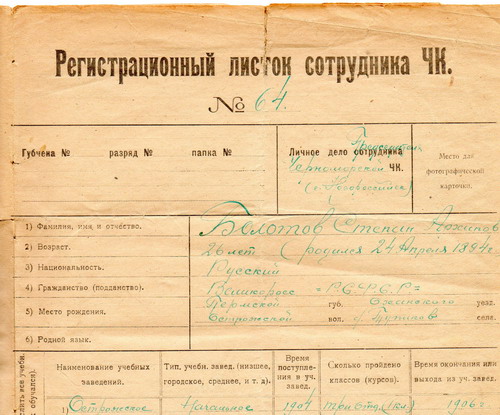 Регистрационный листок сотрудника ЧК.
№ 64.
Губчека № разряд № папка №
Личное дело сотрудника Председателя
Черноморской ЧК.
(г. Новороссийск)
Место для
фотографической
карточки.
1) Фамилия, имя и отчество. Болотов Степан
2) Возраст. 26 лет (родился 24 Апреля 1894 г.
3) Национальность. Русский
4) Гражданство (подданство). Великоросс = Р.С.Ф.С.Р =
5) Место рождения. Пермской губ. Оханского уезд.
Острожской вол. д. села.
6) Родной язык.
Наименование учебных
заведений.
Тип. учебн. завед. (низшее,
городское, среднее, и т. д.).
Время
поступле-
ния в уч.
завед.
Сколько пройдено
классов (курсов).
Время окончания или
выхода из уч. завед.
1) Острожское Начальное 1901 три 1906 г.